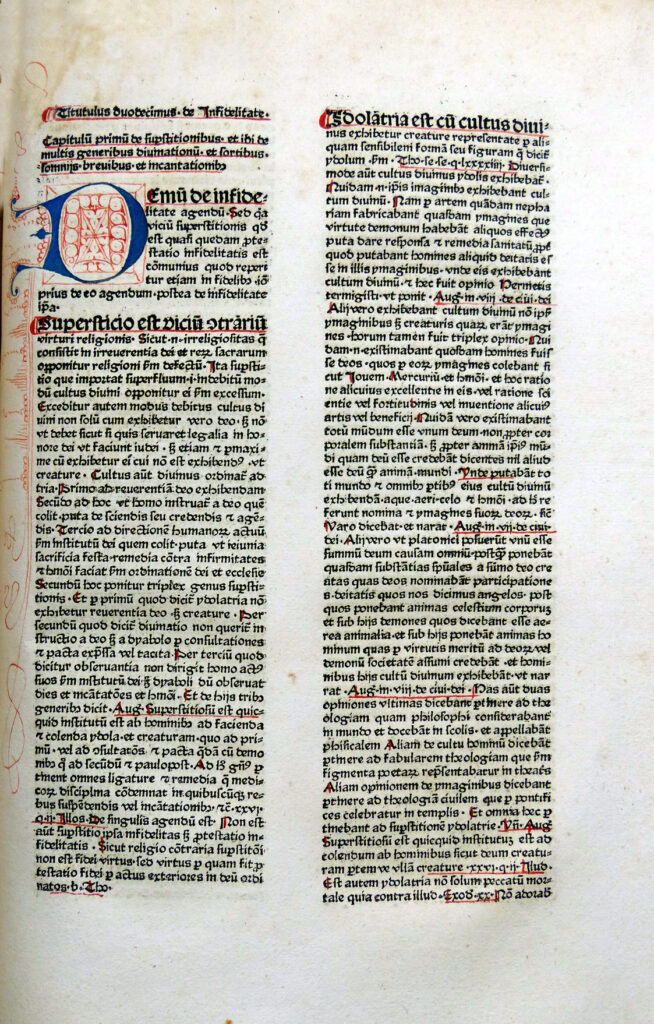 Titutulus duodecimus· de Infidelitate·
Capitulũ primũ de supstitionibus· et ibi de
multis generibus diuinationũ· et sortibus·
somnijs· breuibus· et incantationibꝰ
DEmũ de infide-
litate agendũ· Sed qa
viciũ superstitionis qď
est quasi quedam ꝓte-
statio infidelitatis est
cõmunius quod reperi
tur etiam in fidelibꝰ· iõ
prius de eo agendum· postea de infidelitate
ipa·
Supersticio est viciũ ꝯtrariũ
virtuti religionis· Sicut·n·irreligiositas q̃
consistit in irreuerentia dei et reꝝ sacrarum
opponitur religioni ꝑm defectũ· Ita supsti-
tio que importat superfluum·i·indebitũ mo-
dũ cultus diuini opponitur ei ꝑm excessum·
Exceditur autem modus debitus cultus di
uini non solũ cum exhibetur vero deo· sꝫ nõ
vt debet sicut si quis seruaret legalia in ho-
nore dei vt faciunt iudei· sꝫ etiam ⁊ ꝓmaxi-
me cũ exhibetur ei cui nõ est exhibendꝰ· vt
creature· Cultus aũt diuinus ordinat̃ ad
tria· Primo ad reuerentiã deo exhibendam
Secũdo ad hoc vt homo instruat̃ a deo quẽ
colit· puta de sciendis seu credendis ⁊ agẽ-
dis· Tercio ad directionẽ humanoꝝ actuũ
ꝑm institutũ dei quem colit· puta vt ieiunia
sacrificia festa· remedia cõtra infirmitates
⁊ hmõi faciat ꝑm ordinationẽ dei et ecclesie
Secundũ hoc ponitur triplex genus supsti-
tionis· Et ꝑ primũ quod dicit̃ ydolatria nõ
exhibetur reuerentia deo· sꝫ creature· Per
secundũ quod dicit̃ diuinatio non querit̃ in
structio a deo sꝫ a dyabolo ꝑ consultationes
⁊ pacta exp̃ssa vel tacita· Per terciũ quod
dicitur obseruantia non dirigit homo actꝰ
suos ꝑm institutũ dei sꝫ dyaboli dũ obseruat
dies et incãtatões et hmõi· Et de hijs tribꝰ
generibꝰ dicit· Aug· Superstitiosũ est quic-
quid institutũ est ab hominibꝰ ad facienda
⁊ colenda ydola· et creaturam· quo ad pri-
mũ· vel ad ꝯsultatões ⁊ pacta q̃dã cũ demo
nibꝰ q̃ ad secũdũ ⁊ paulopost· Ad hꝫ gen̰ꝰ ꝑ
tinent omnes ligature ⁊ remedia q̃ medi-
coꝝ disciplina cõdemnat in quibuscũqꝫ re-
bus suspẽdendis vel incãtationibꝰ ⁊c̃·xxvi·
q·ij·Illos· De singulis agendũ est· Non est
aũt supstitio ipsa infidelitas sꝫ ꝓtestatio in-
fidelitatis· Sicut religio cõtraria supstitõi
non est fidei virtus· sed virtus ꝑ quam fit ꝓ
testatio fidei ꝑ actus exteriores in deũ ordi
natos· b· Tho·
YDolãtria est cũ cultus diui-
nus exhibetur creature representate ꝑ ali-
quam sensibilem formã seu figuram q̃ dicit̃
ydolum ꝑm· Tho·se·se·q·lxxxxiiij· Diuersi-
mode aũt cultus diuinus ydolis exhibebat̃·
Quidam·n·ip̃is imaginibꝰ exhibebant cul-
tum diuinũ· Nam ꝑ artem quãdam nepha
riam fabricabant quasdam ymagines que
virtute demonum habebãt aliquos effectꝰ
puta dare responsa ⁊ remedia sanitatũ· ꝓpt̃
quod putabant homines aliquid deitatis es
se in illis ymaginibus· vnde eis exhibebant
cultum diuinũ· ⁊ hec fuit opinio· Hermetis
termigisti· vt ponit· Aug·in·viij·de·ciui·dei
Alij vero exhibebant cultum diuinũ nõ ip̃is
ymaginibus sꝫ creaturis quaꝝ erãt ymagi
nes· horum tamen fuit triplex opinio· Qui
dam·n·existimabant quosdam homines fuis
se deos· quos ꝑ eoꝝ ymagines colebant si
cut Iouem· Mercuriũ et hmõi· et hoc ratio
ne alicuius excellentie in eis· vel ratione sci
entie vel fortitudinis vel inuentione alicuiꝰ
artis vel beneficij· Quidã vero existimabant
totũ mũdum esse vnum deum· non ꝓpter cor
poralem substantiã· sꝫ ꝓpter animã ip̃iꝰ mũ-
di quam deũ esse credebãt dicentes nil aliud
esse deũ q̃ꝫ animã mundi· Vnde putabãt to
ti mundo ⁊ omnibꝰ ꝑtibꝰ eius cultũ diuinũ
exhibendã· aque·aeri·celo ⁊ hmõi· ad hꝫ re
ferunt nomina ⁊ ymagines suoꝝ deoꝝ· sic̃
Varo dicebat· et narat· Aug·in·vij·de ciui·
dei· Alij vero vt platonici posuerũt vnũ esse
summũ deum causam omniũ· postq̃ꝫ ponebãt
quasdam substãtias sp̃uales a sũmo deo cre
atas quas deos nominabãt participatione
s·deitatis quos nos dicimus angelos· post
quos ponebant animas celestium corporuꝫ
et sub hijs demones quos dicebant esse ae-
rea animalia· et sub hijs ponebãt animas ho
minum quas ꝑ virtutis meritũ ad deoꝝ vel
demonũ societatẽ assumi credebãt· et homi-
nibus hijs cultũ diuinum exhibebãt· vt nar-
rat· Aug·in·viij·de ciui·dei· Has aũt duas
opiniones vltimas dicebant ꝑtinere ad the
ologiam quam philosophi considerabãt
in mundo et docebãt in scolis· et appellabãt
phisicalem· Aliam de cultu hominũ dicebãt
ꝑtinere ad fabularem theologiam que ꝑm
figmenta poetaꝝ rep̃sentabatur in theat̃s
Aliam opinionem de ymaginibus dicebant
ꝑtinere ad theologiã ciuilem que ꝑ pontifi
ces celebratur in templis· Et omnia hec ꝑ
tinebant ad supstitionẽ ydolatrie· Vñ· Aug
Superstitiosũ est quicquid institutuꝫ est ad
colendum ab hominibus sicut deum creatu-
ram ꝑtem ve vllã creature·xxvi·q·ij·Illud·
Est autem ydolatria nõ solum peccatũ mor-
tale quia contra illud· Exod·xx· Nõ adorab̃